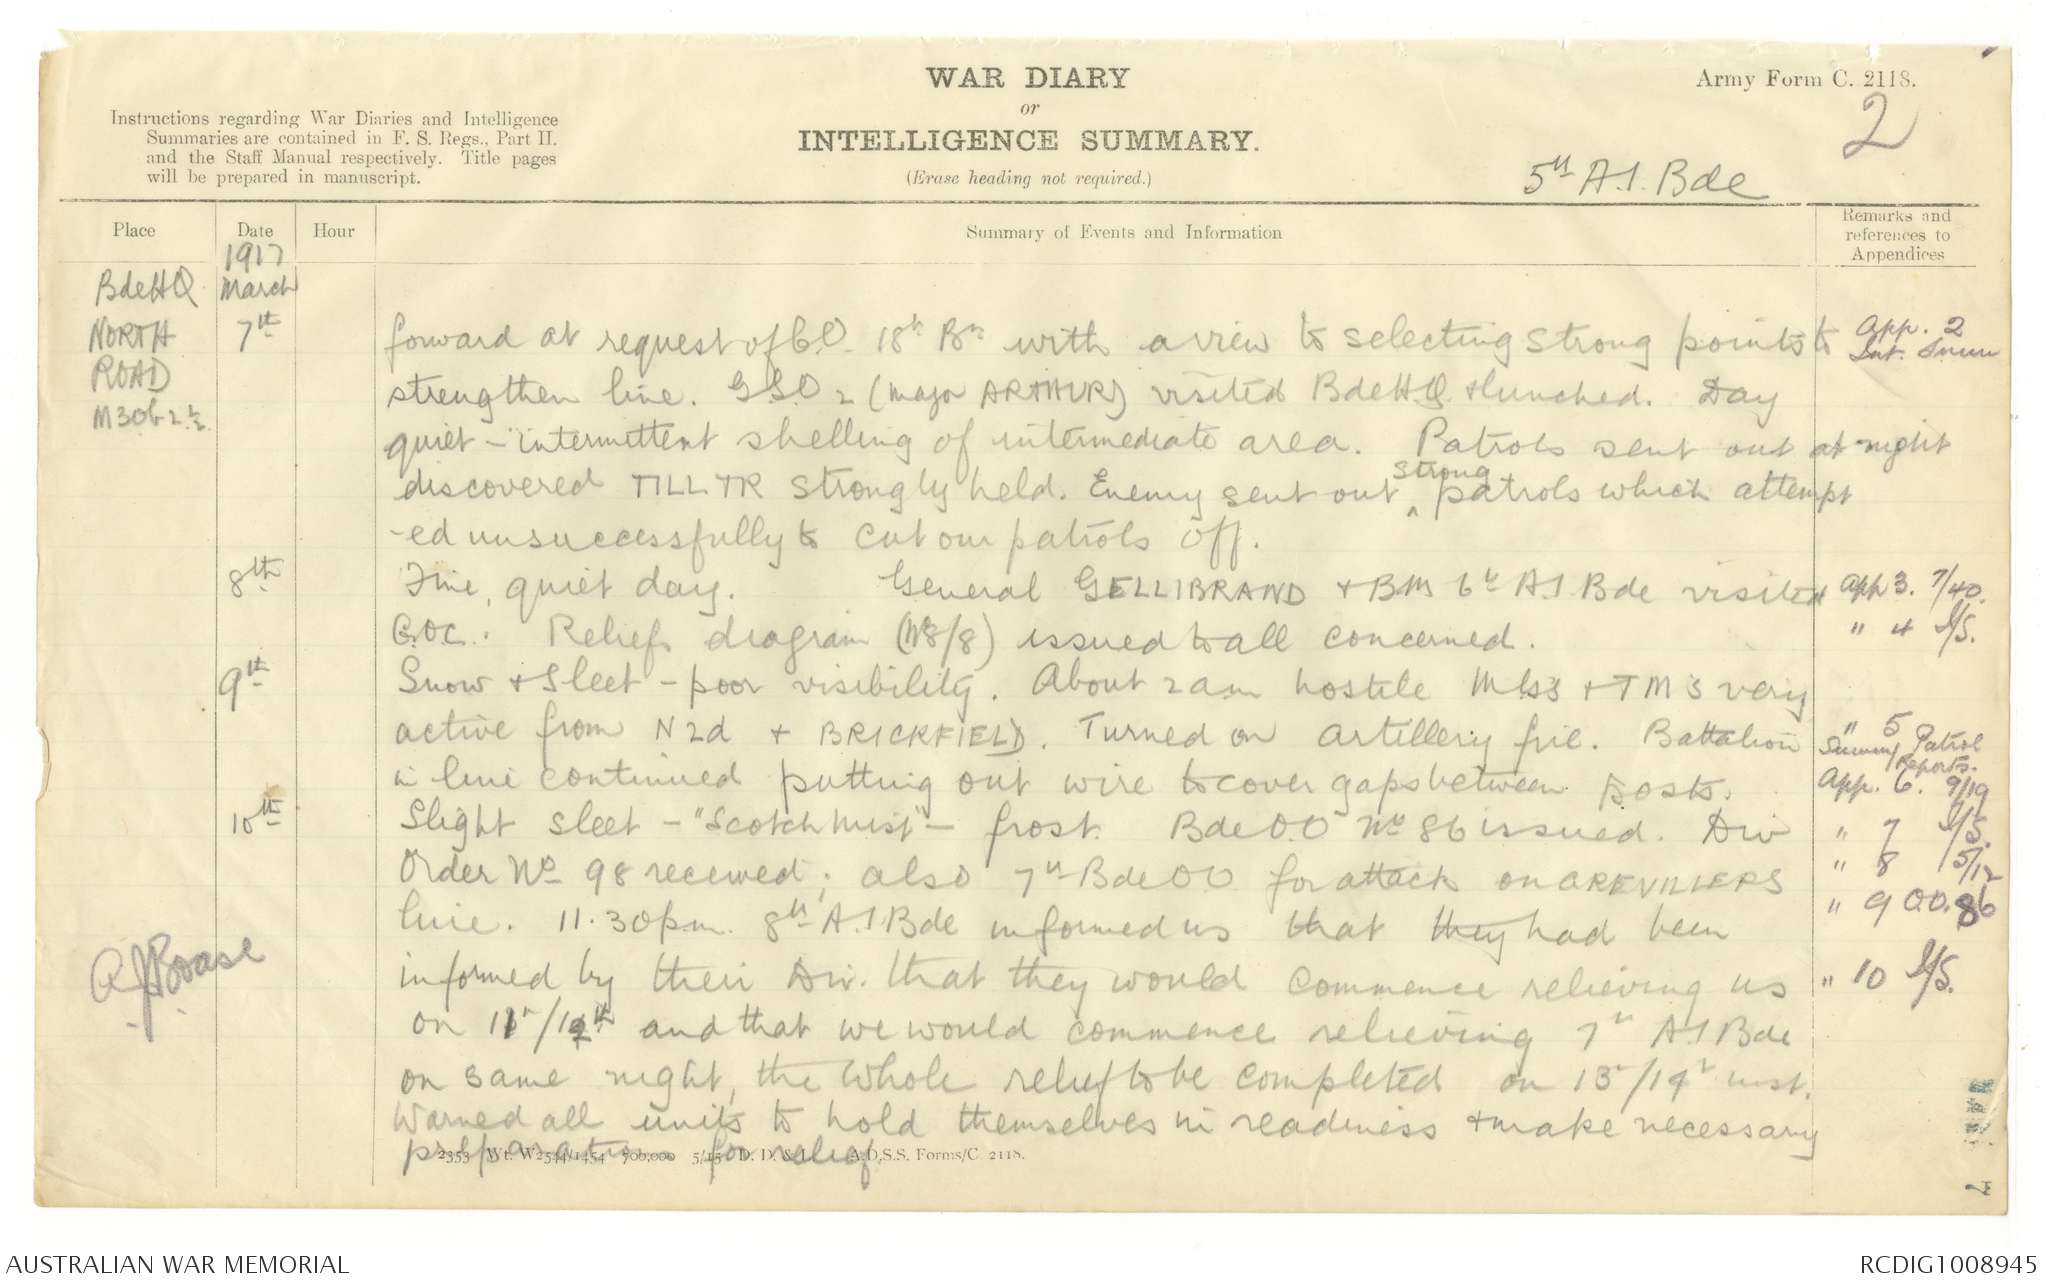 WAR DIARY
or
INTELLIGENCE SUMMARY.
(Erase heading not required.)
Army Form C. 2118.
2
Instructions regarding War Diaries and Intelligence
Summaries are contained in F. S. Regs., Part II.
and the Staff Manual respectively. Title pages
will be prepared in manuscript.
5th A.I. Bde
Place
Date
Hour
Summary of Events and Information
Remarks and
references to
Appendices
1917
Bde HQ March
NORTH 7th forward at request of CO 18th Bn with a view to selecting strong points to App. 2
ROAD Int. Summ
M30b 2.½ strengthen line. GSO 2 (Major ARTHUR) visited Bde HQ & lunched. Day
quiet – intermittent shelling of intermediate area. Patrols sent out at night
discovered TILL TR strongly held. Enemy sent out ^strong patrols which attempt
-ed unsuccessfully to cut our patrols off.
8th Fine, quiet day. General GELLIBRAND & BM 6th A.I Bde visited App 3. 7/40.
G.O.C. Relief diagram (No 8/8) issued to all concerned. " 4 I/S.
9th Snow & Sleet – poor visibility. About 2 am hostile MGs & TM's very
active from N2d & BRICKFIELD. Turned on artillery fire. Battalion " 5 Summy Patrol Reports.
in line continued putting out wire to cover gaps between posts. App. 6. 9/19
10th Slight sleet – "Scotch Mist" – frost. Bde O.O No 86 issued. Div " 7 I/S.
Order No 98 received; also 7th Bde OO for attack on GREVILLERS " 8 15/12
line. 11.30pm. 8th A.I Bde informed us that they had been " 9 O.O. 86
informed by their Div. that they would commence relieving us " 10 I/S.
on 11th/12th and that we would commence relieving 7th A.I Bde
on same night, the whole relief to be completed on 13th/14th inst.
Warned all units to hold themselves in readiness & make necessary
preparation for relief.
A J Boase
2353 Wt. W2544/1454 700,000 5/15 D. D. & L. A.D.S.S. Forms/C. 2118.
AUSTRALIAN WAR MEMORIAL
RCDIG1008945